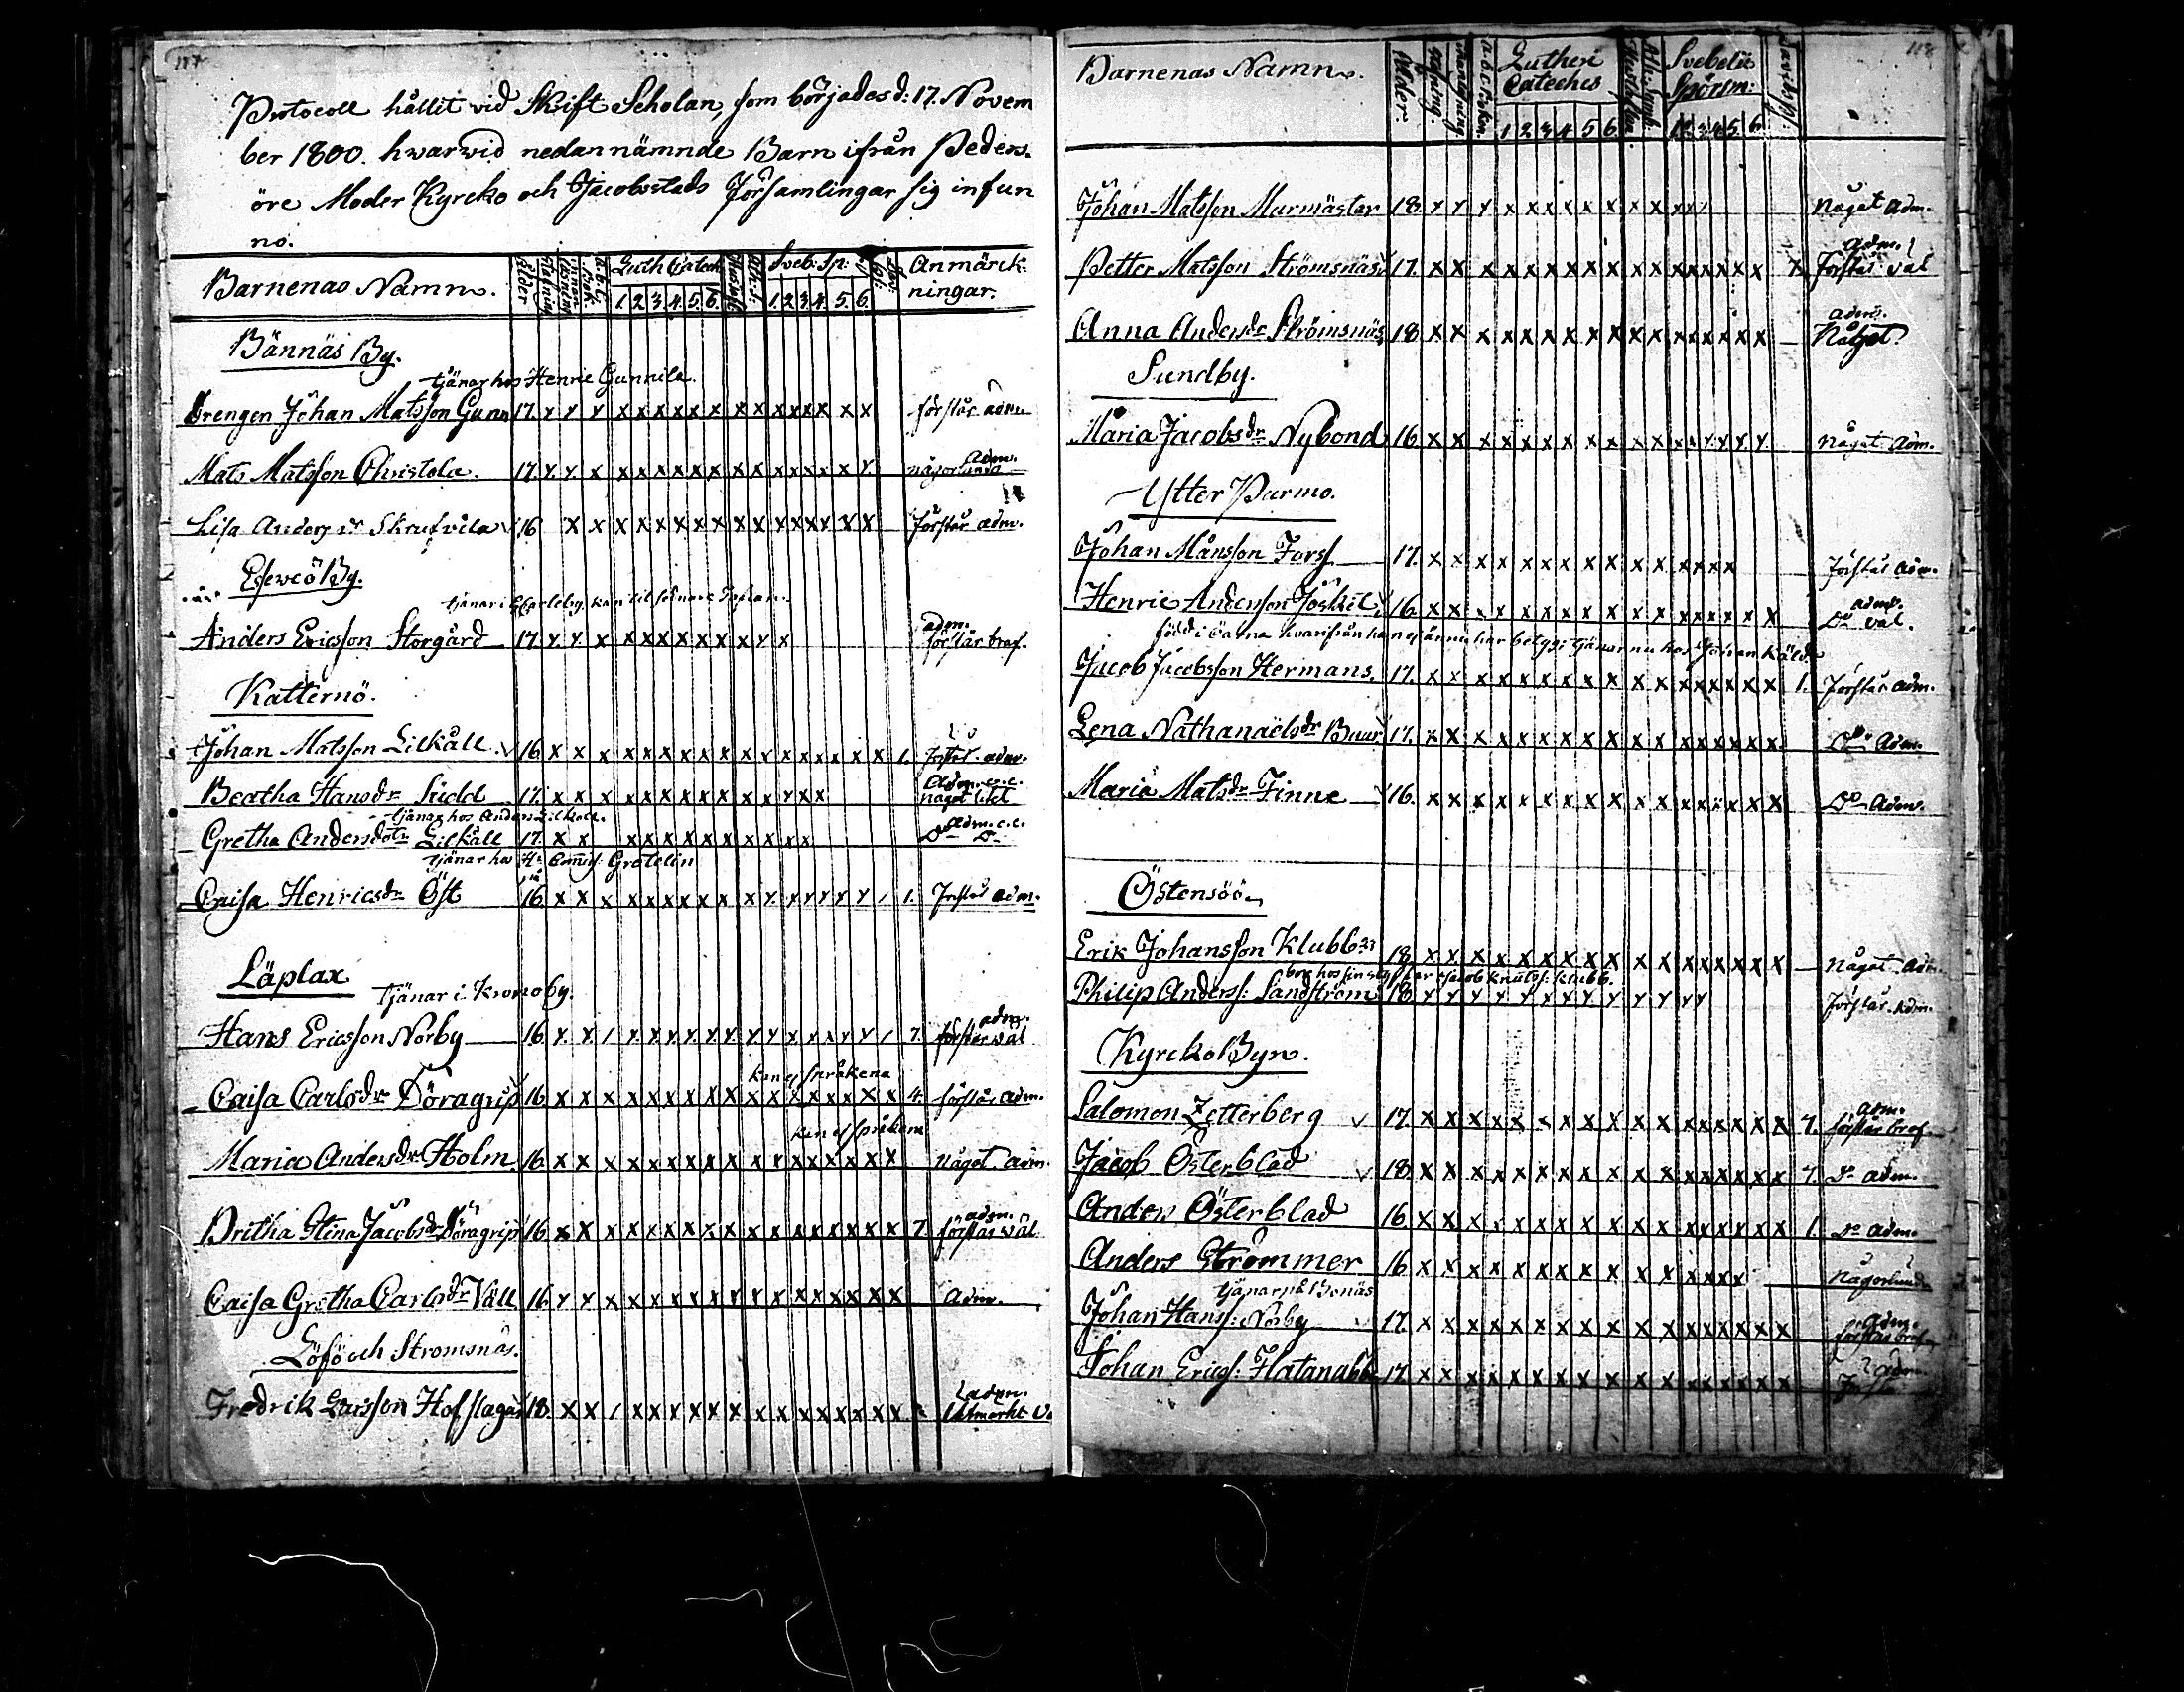 117
Protocoll hållit vid Skrift Scholan, som börjades d: 17. Novem
ber 1800. hwarwid nedannämnde Barn ifrån Peders-
öre Moder Kyrcko och Jacobstads Församlingar sig infun
no.
Barnenas Namn. Ålder Stafning Luth Catech 1. 2. 3. 4. 5. 6. Sveb: Sp: 1. 2. 3. 4. 5. 6. Anmärck-
ningar.
Bännäs By.
tjänar hos Henric Gunnila.
Drengen Johan Matsson Gunn 17. x x x x x x x x x x x x x x x x x förstår adm
adm.
Mats Matsson Christola. 17. x x x x x x x x x x x x x x x x x någorlunda
Lisa Anders dr Skrufvila 16 x x x x x x x x x x x x x x x x förstår adm.
Esseweö By.
Anders Ericsson Storgård 17. x x x x x x x x x x x x adm. förstår braf.
Katternö.
Johan Matsson Lillkåll 16 x x x x x x x x x x x x x x x x x 1. adm.
Beatha Hansdr Sudd 17. x x x x x x x x x x x x x x Adm. c.c.
något litet
tjänar hos Anders Lilkåll.
Gretha Andersdotr Lilkåll 17. x x x x x x x x x x x x x adm. c.c. Do Do
tjänar hos Hr Comis: Gretelin
Caisa Henricsdr Öst 16 x x x x x x x x x x x x x x x x x 1. Förstår adm.
Läplax
tjänar i Kronoby.
Hans Ericsson Norby 16 x x / x x x x x x x x x x x x x x / 7. adm. förstår väl
kan ej språkena
Caisa Carlsdr Döragrip 16 x x x x x x x x x x x x x x x x x 4. förstår adm.
kan ej språkena
Maria Andersdr Holm 16 x x x x x x x x x x x x x x x x x något. adm.
Britha Stina Jacobsdr Döragrip 16. x x x x x x x x x x x x x x x x x 7 adm. förstår väl.
Caisa Gretha Carlsdr Väll 16 x x x x x x x x x x x x x x x x x adm.
Löfö och Stromsnäs.
Fredrik Larsson Hofslagar 18. x x / x x x x x x x x x x x x x x adm.
Utmärkt
118
Barnenas Namn. Ålder: Stafning: Lutheri
Cateches 1 2 3 4 5 6 Svebelii
Spörsm: 1 2 3 4 5 6
Johan Matsson Murmästar 18. x x x x x x x x x x x x x x något adm.
Petter Matsson Strömsnäs 17. x x x x x x x x x x x x x x x x x 7. adm. Förstår väl
Anna Andersdr Strömsnäs 18 x x x x x x x x x x x x x x x x x adm. Något
Sundby.
Maria Jacobsdr Nybond 16 x x x x x x x x x x x x x x x x x något adm.
Ytter Purmo.
Johan Månsson Forss 17. x x x x x x x x x x x x x x x förstår adm.
Henric Andersson Joskil 16 x x x x x x x x x x x x x x x x x adm. Do väl.
född i hvarifrån han ej ännu har betyg: tjänar nu hos Johan Käld
Jacob Jacobsson Hermans. 17. x x x x x x x x x x x x x x x x x 1. förstår adm.
Lena Nathanaelsdr Buur 17. x x x x x x x x x x x x x x x x x Do adm.
Maria Matsdr Finne 16. x x x x x x x x x x x x x x x x x Do adm.
Östensöö
Erik Johansson Klubb 18. x x x x x x x x x x x x x x x x x Något adm.
bor hos sin styffar Jacob Knuts: Klubb.
Philip Anders: Sandström 18 x x x x x x x x x x x x x förstår adm.
Kyrcko Byn.
Salomon Zetterberg 17. x x x x x x x x x x x x x x x x x 7. adm. förstår braf
Jacob Österblad 18 x x x x x x x x x x x x x x x x x 7. Do adm.
Anders Österblad 16 x x x x x x x x x x x x x x x x x 1. Do adm.
Anders Strömmer 16 x x x x x x x x x x x x x x x någorlunda
tjänar på Bonäs
Johan Hans: Norby 17. x x x x x x x x x x x x x x x x x adm. förstår braf
Johan Erics: Hatanabb 17 x x x x x x x x x x x x x x x x x adm.